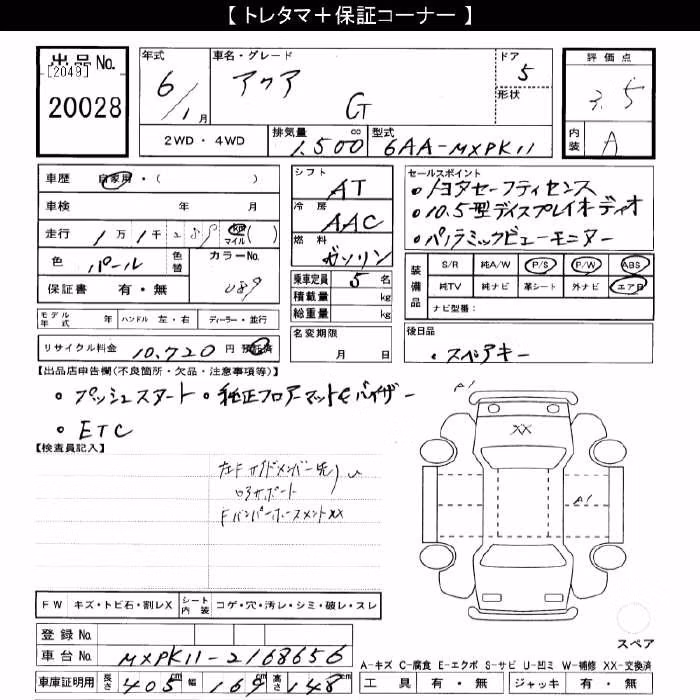 【 トレタマ＋保証コーナー 】
出品 No. [2049] 20028
年式 6/1月
車名・グレード アクア G
ドア 5
形状
評価点 3.5
内装 A
2WD・4WD
排気量 1.500 cc
型式 6AA-MXPK11
車歴 自家用・( )
車検 年 月
走行 1万1千289 km マイル ( )
色 パール 色替 カラーNo. 089
保証書 有・無
モデル年式 年 ハンドル 左・右 ディーラー・並行
リサイクル料金 10,720円 預託済
シフト AT
冷房 AAC
燃料 ガソリン
乗車定員 5名
積載量 kg
総重量 kg
名変期限 月 日
セールスポイント
・トヨタセーフティセンス
・10.5型ディスプレイオーディオ
・パノラミックビューモニター
装備品 S/R 純A/W P/S P/W ABS
純TV 純ナビ 革シート 外ナビ エアB
ナビ型番：
後日品
・スペアキー
【出品店申告欄(不良箇所・欠品・注意事項等)】
・プッシュスタート ・純正フロアマット&バイザー
・ETC
【検査員記入】
左Fサイドメンバー先
ロアサポート
FバンパーホースメントXX
A1
XX
A1
FW キズ・トビ石・割レX シート内装 コゲ・穴・汚レ・シミ・破レ・スレ
登録 No.
車台 No. MXPK11-2168656
車庫証明用 長さ 405cm 幅 169cm 高さ 148cm
スペア
A-キズ C-腐食 E-エクボ S-サビ U-凹ミ W-補修 XX-交換済
工具 有・無 ジャッキ 有・無